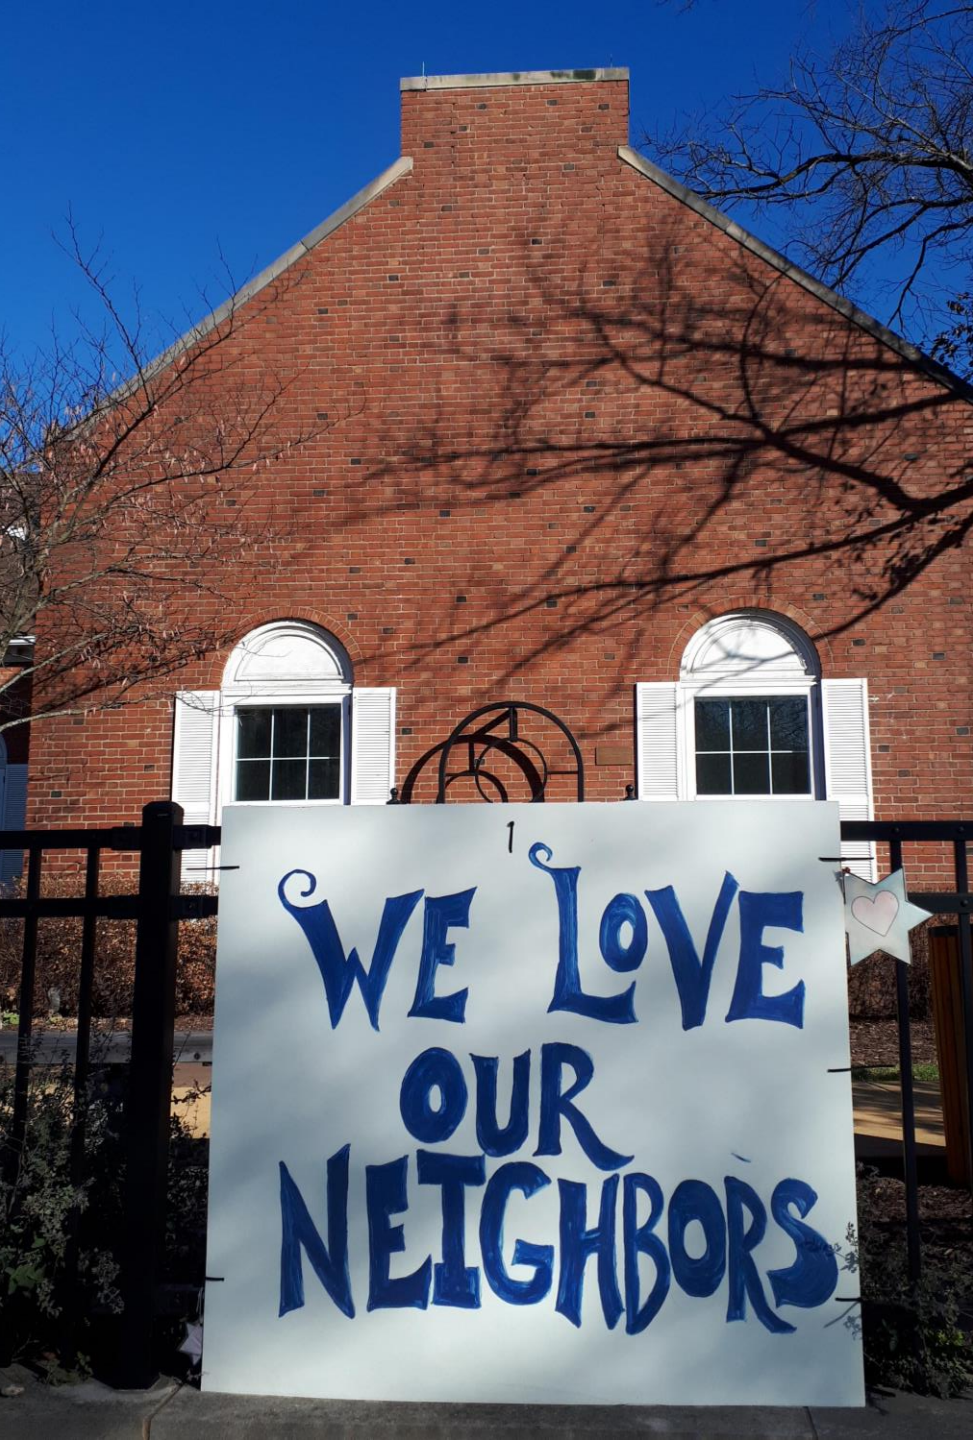 1
WE LOVE
OUR
NEIGHBORS